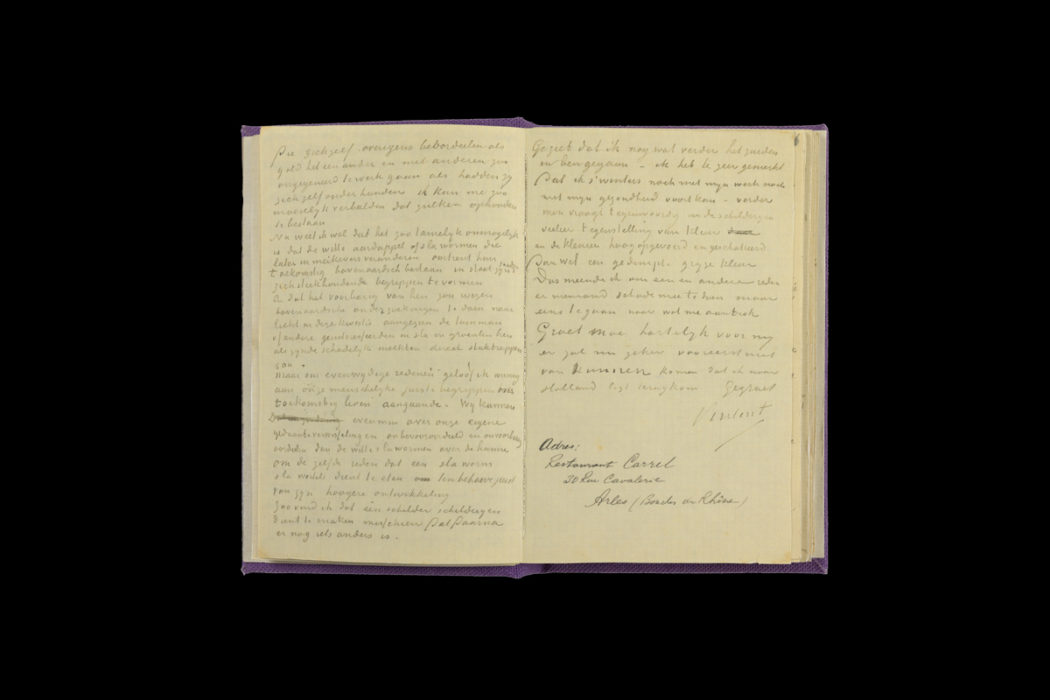 Die zichzelf overigens beoordeelen als
goed het een ander en met anderen zoo
ongegeneerd te werk gaan als hadden zy
zich zelf onder handen ik kan me zoo
moeielyk verbeelden dat zulken ophouden
te bestaan
Nu weet ik wel dat het zoo tamelyk onmogelyk
is dat de witte aardappel of sla wormen die
later in meikevers veranderen omtrent hun
toekomstig bovenaardsch bestaan in staat zyn
zich steekhoudende begrippen te vormen
En dat het voorbarig van hen zou wezen
bovenaardsche onderzoekingen te doen naar
licht in deze kwestie aangezien de tuinman
of andere geinteresseerden in sla en groenten hen
als zynde schadelyk insekten direct stuktrappen
zou.
Maar om evenwydige redenen geloof ik weinig
aan onze menschelyke juiste begrippen
toekomstig leven aangaande. Wy kunnen
evenmin over onze eigene
gedaanteverwisselingen onbevooroordeeld en onvoorbarig
oordelen dan de witte sla wormen over de hunne
om de zelfde reden dat een sla worm
sla wortels dient te eten ten behoeve juist
van zyn hoogere ontwikkeling
Zoo vind ik dat een schilder schilderyen
dient te maken misschien dat daarna
er nog iets anders is.
Ge ziet dat ik nog wat verder het zuiden
in ben gegaan – ik heb te zeer gemerkt
Dat ik s'winters noch met myn werk noch
met myn gezondheid voort kon – verder
men vraagt tegenwoordig in de schilderyen
veeleer tegenstelling van kleur
en de kleuren hoog opgevoerd en geschakeerd
Dan wel een gedempt gryze kleur
Dus meende ik om een en andere reden
er niemand schade mee te doen maar
eens te gaan naar wat me aantrok
Groet Moe hartelyk voor my
er zal nu zeker vooreerst niet
van kunnen komen dat ik naar
Holland eens terugkom Gegroet
Vincent
Adres:
Restaurant Carrel
30 Rue Cavalerie
Arles (Bouches du Rhône)